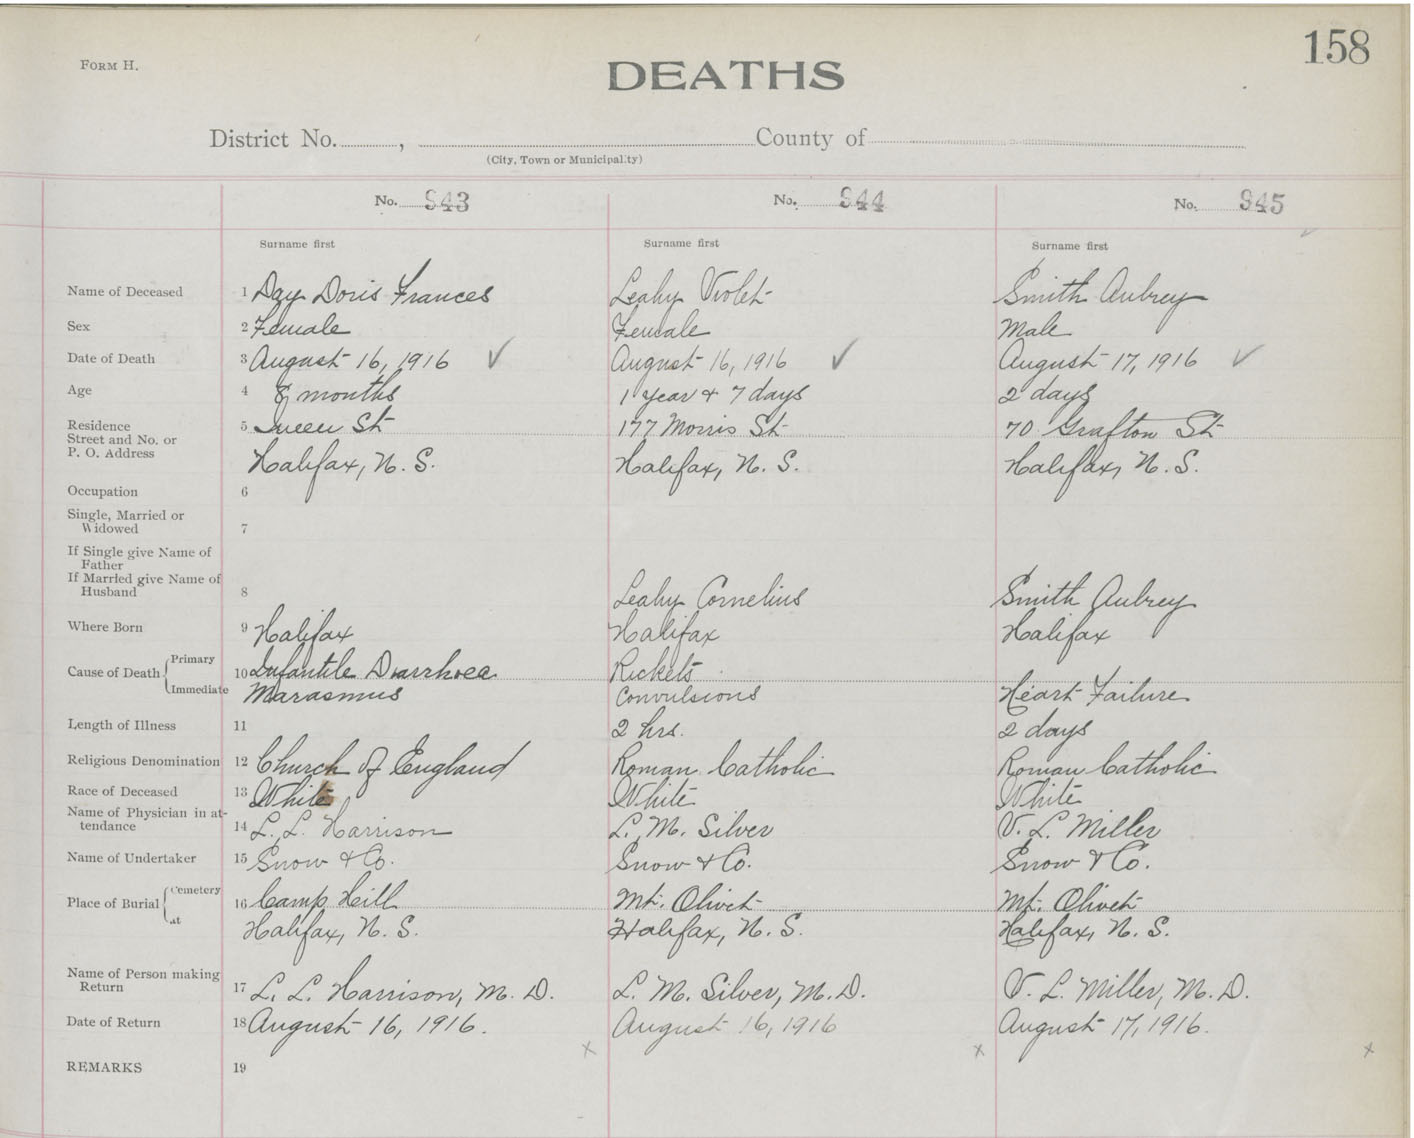 158
FORM H.
DEATHS
District No. , County of
(City, Town or Municipality)
No. 943 No. 944 No. 945
Surname first Surname first Surname first
Name of Deceased 1 Day Doris Frances Leahy Violet Smith Aubrey
Sex 2 Female Female Male
Date of Death 3 August 16, 1916 August 16, 1916 August 17, 1916
Age 4 8 months 1 year & 7 days 2 days
Residence
Street and No. or 5 Queen St 177 Morris St 70 Grafton St
P. O. Address Halifax, N. S. Halifax, N. S. Halifax, N. S.
Occupation 6
Single, Married or
Widowed 7
If Single give Name of
Father
If Married give Name of
Husband 8 Leahy Cornelius Smith Aubrey
Where Born 9 Halifax Halifax Halifax
Cause of Death Primary 10 Infantile Diarrhoea Rickets
Immediate Marasmus Convulsions Heart Failure
Length of Illness 11 2 hrs. 2 days
Religious Denomination 12 Church of England Roman Catholic Roman Catholic
Race of Deceased 13 White White White
Name of Physician in at-
tendance 14 L. L. Harrison L. M. Silver V. L. Miller
Name of Undertaker 15 Snow & Co. Snow & Co. Snow & Co.
Place of Burial Cemetery 16 Camp Hill Mt. Olivet Mt. Olivet
at Halifax, N. S. Halifax, N. S. Halifax, N. S.
Name of Person making
Return 17 L. L. Harrison, M. D. L. M. Silver, M. D. V. L. Miller, M. D.
Date of Return 18 August 16, 1916. August 16, 1916 August 17, 1916.
REMARKS 19